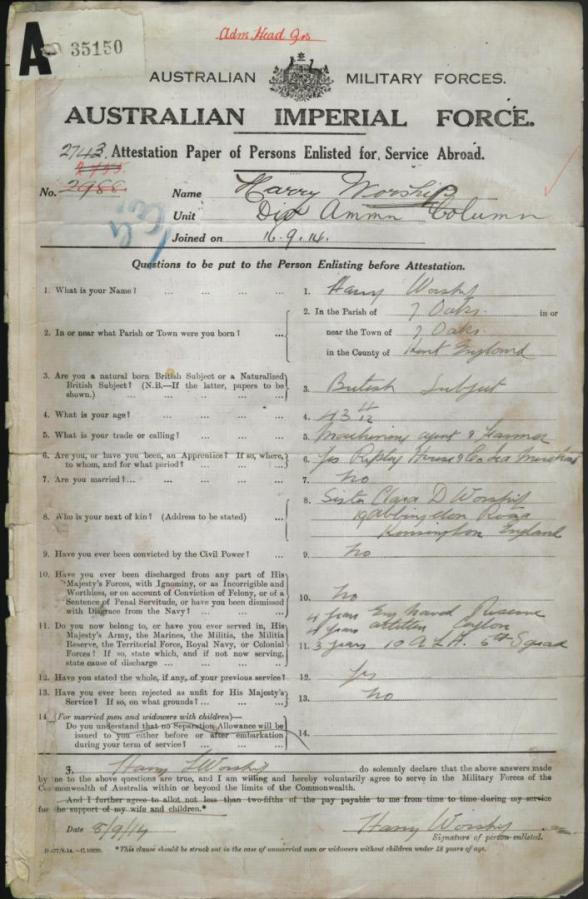 Adm Head Qrs
A 35150
AUSTRALIAN MILITARY FORCES.
AUSTRALIAN IMPERIAL FORCE.
2743. Attestation Paper of Persons Enlisted for Service Abroad.
No. 2988 Name Harry Worship
Unit Div Ammn Column
Joined on 16.9.14.
Questions to be put to the Person Enlisting before Attestation.
1. What is your Name? ... ... ... 1. Harry Worship
2. In or near what Parish or Town were you born? ... 2. In the Parish of 7 Oaks in or
near the Town of 7 Oaks
in the County of Kent England
3. Are you a natural born British Subject or a Naturalised
British Subject? (N.B.—If the latter, papers to be
shown.) ... ... ... 3. British Subject
4. What is your age? ... ... ... 4. 43 4/12
5. What is your trade or calling? ... ... 5. Machinery agent & Farmer
6. Are you, or have you been, an Apprentice? If so, where,
to whom, and for what period? ... ... 6. Yes Ripley House & Co Tea Merchant
7. Are you married? ... ... ... 7. No
8. Who is your next of kin? (Address to be stated) ... 8. Sister Clara D Worship
19 Abbingdon Road
Kensington England
9. Have you ever been convicted by the Civil Power? ... 9. No
10. Have you ever been discharged from any part of His
Majesty's Forces, with Ignominy, or as Incorrigible and
Worthless, or on account of Conviction of Felony, or of a
Sentence of Penal Servitude, or have you been dismissed
with Disgrace from the Navy? ... ... 10. No
11. Do you now belong to, or have you ever served in, His
Majesty's Army, the Marines, the Militia, the Militia
Reserve, the Territorial Force, Royal Navy, or Colonial
Forces? If so, state which, and if not now serving,
state cause of discharge ... ... 4 years Eng Naval Reserve
4 years Artillery Ceylon
11. 3 years 10 A L H. 5th Squad
12. Have you stated the whole, if any, of your previous service? 12. Yes
13. Have you ever been rejected as unfit for His Majesty's
Service? If so, on what grounds? ... ... 13. No
14. (For married men and widowers with children)—
Do you understand that no Separation Allowance will be
issued to you either before or after embarkation
during your term of service? ... ... 14.
3. Harry Worship do solemnly declare that the above answers made
by me to the above questions are true, and I am willing and hereby voluntarily agree to serve in the Military Forces of the
Commonwealth of Australia within or beyond the limits of the Commonwealth.
And I further agree to allot not less than two-fifths of the pay payable to me from time to time during my service
for the support of my wife and children.*
Date 5/9/14 Harry Worship
Signature of person enlisted.
*This clause should be struck out in the case of unmarried men or widowers without children under 18 years of age.